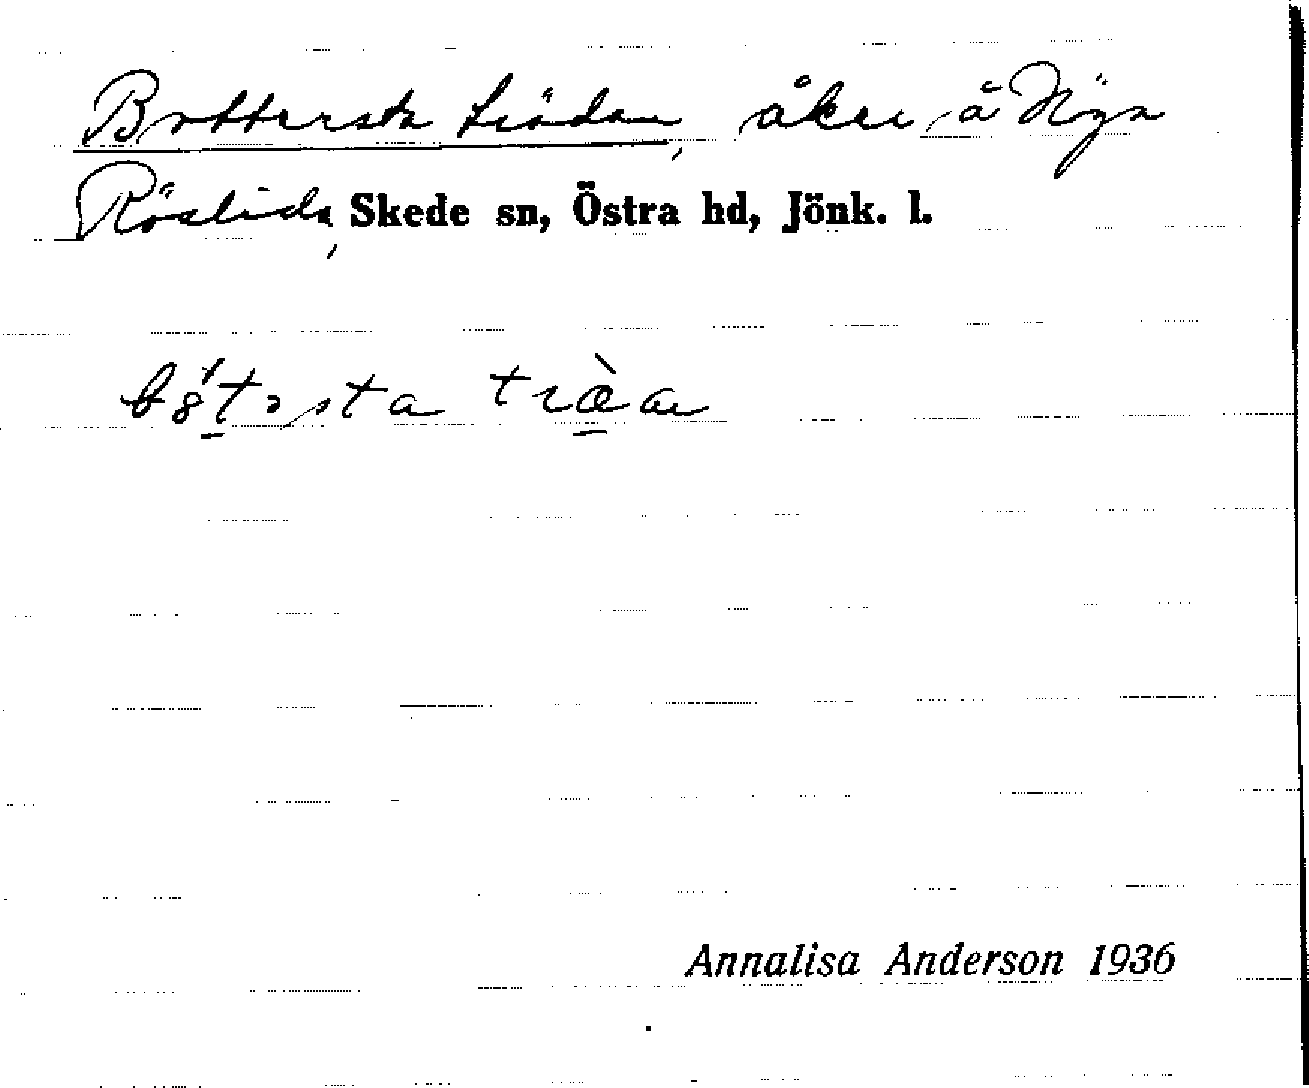 Bottersta trädan, åker, å Höga
Röslida, Skede sn, Östra hd, Jönk. l.
trœ̀an
Annalisa Anderson 1936